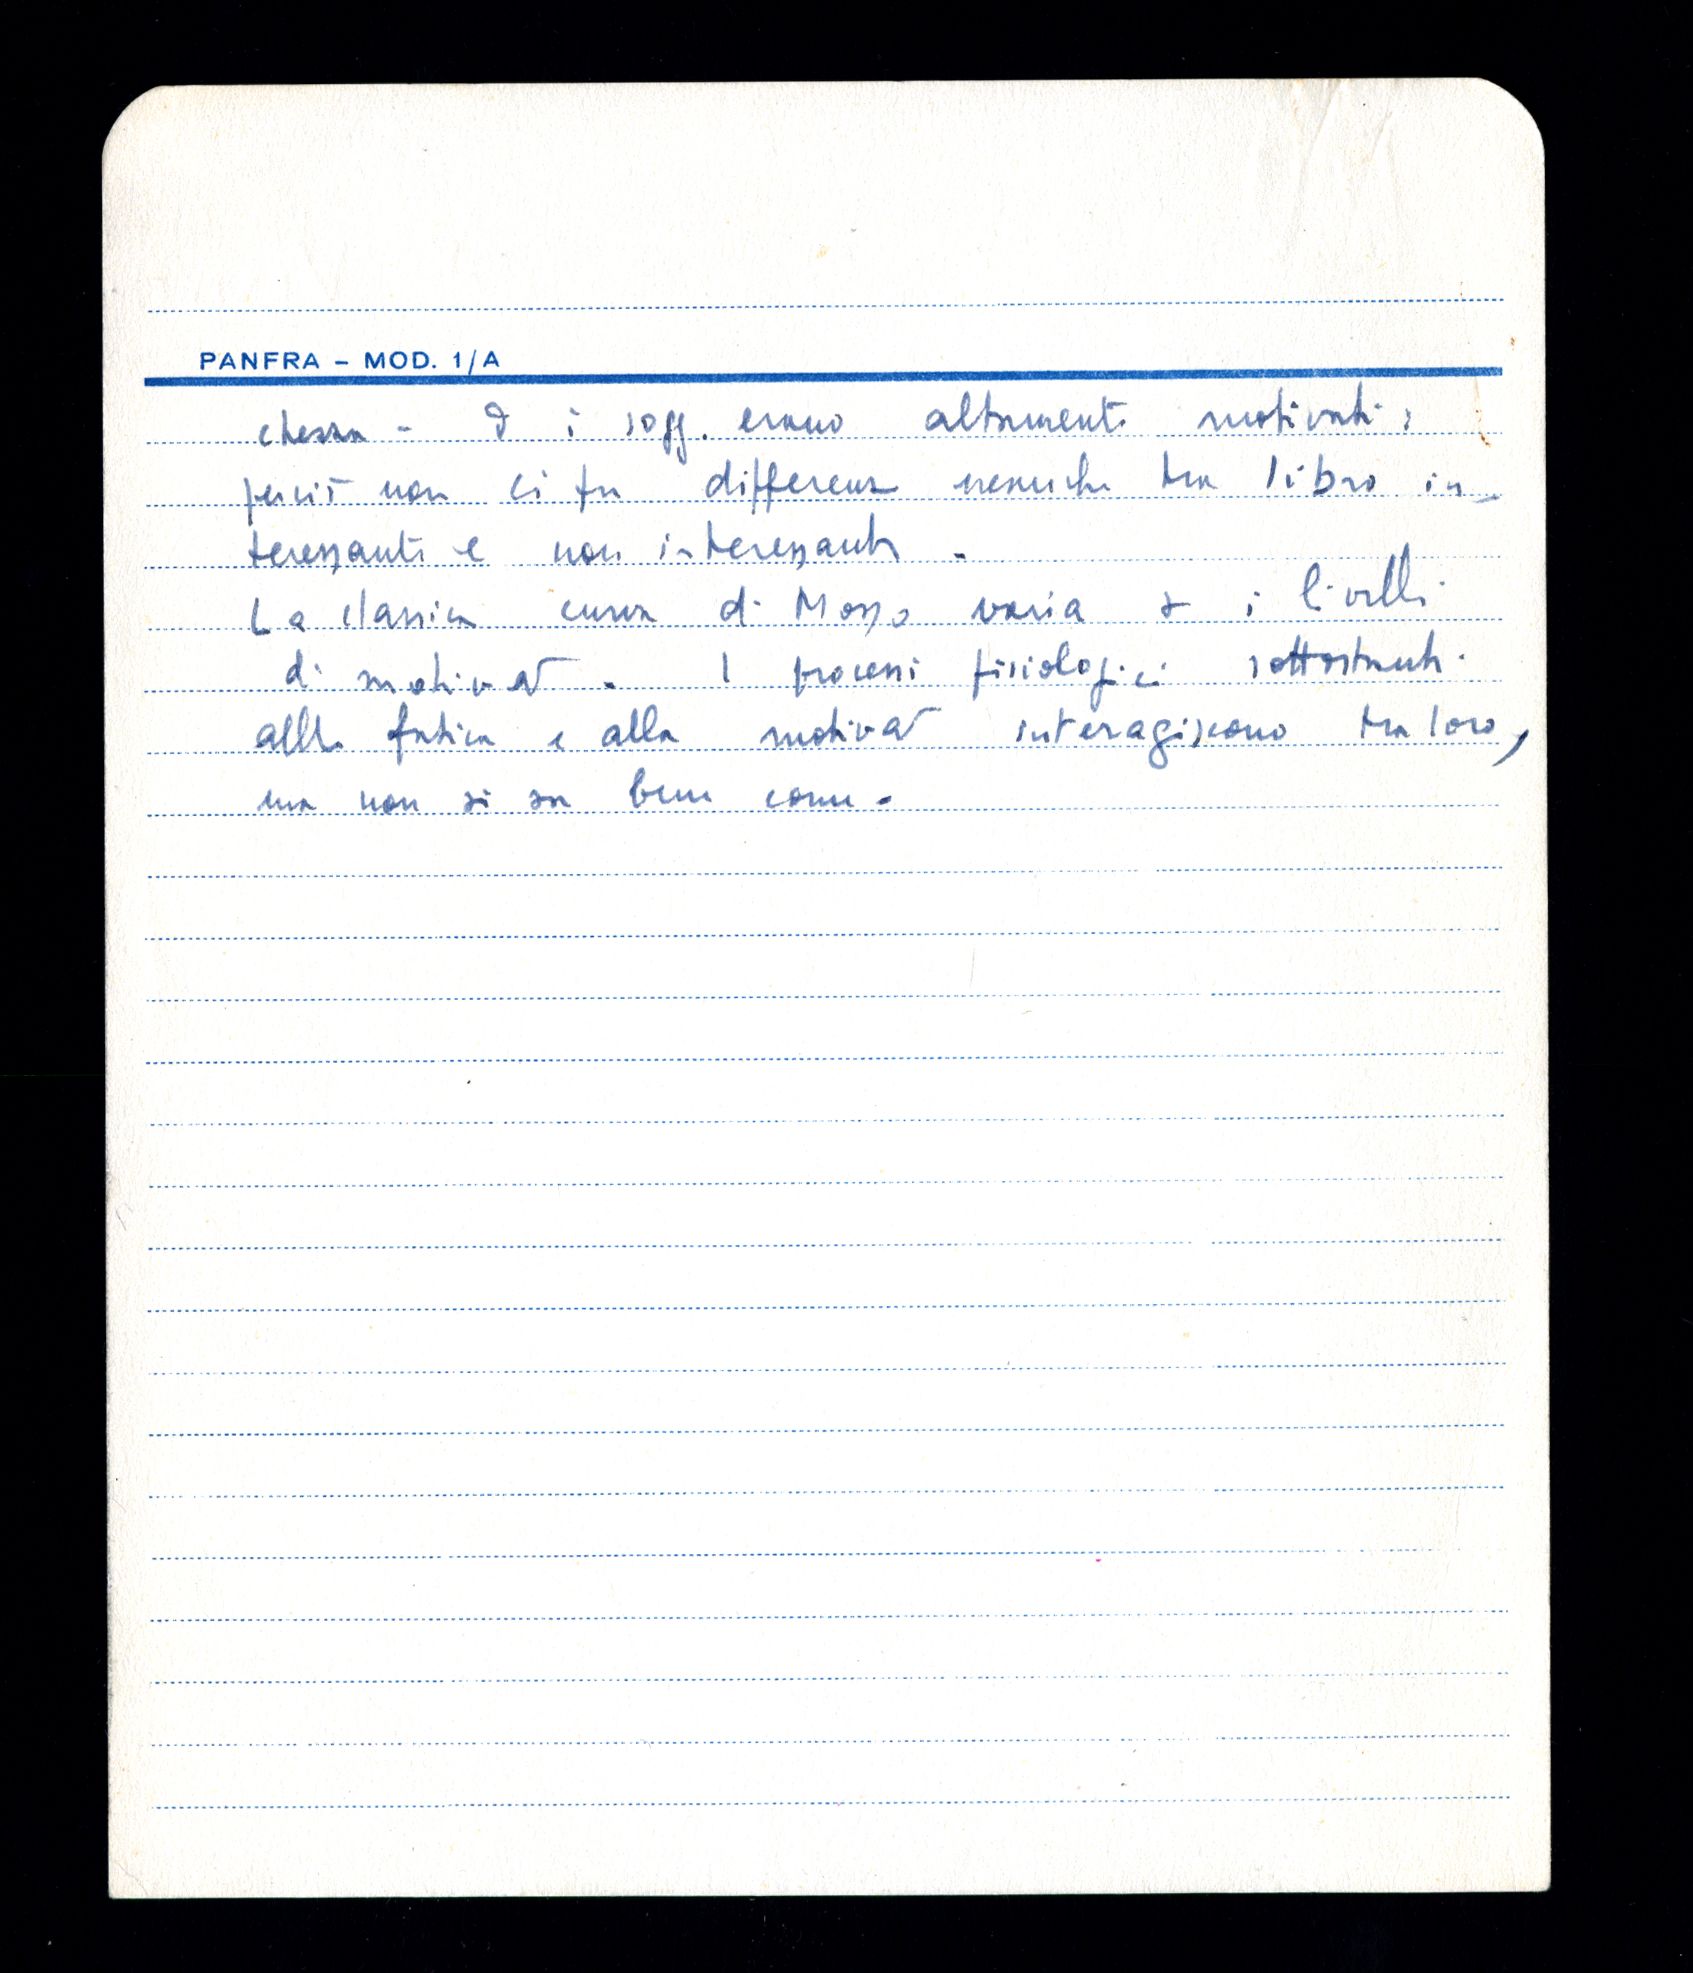 PANFRA - MOD. 1/A
chezza - I sogg. erano altamente motivati:
perciò non ci fu differenza neanche tra libro in-
teressante e non interessante.
La classica curva di Mosso varia i livelli
di motivaz. I processi fisiologici sottostanti
alla fatica e alla motivaz interagiscono tra loro,
ma non si sa bene come.